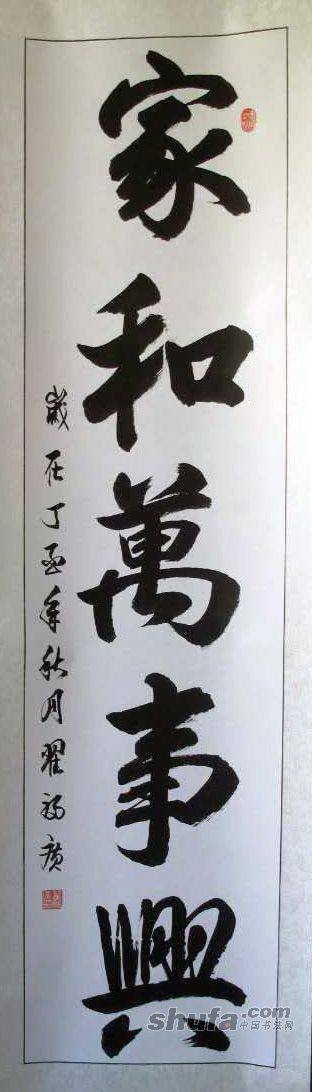 家和萬事興
歲在丁亥年秋月翟福廣
shufa.com
中国书法网